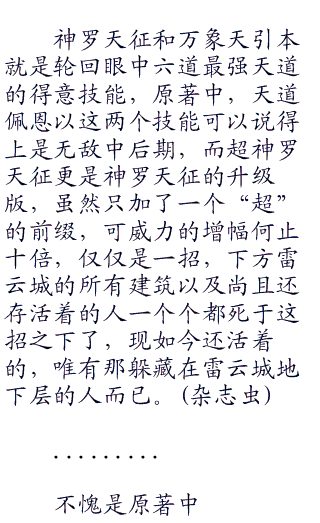 神罗天征和万象天引本
就是轮回眼中六道最强天道
的得意技能，原著中，天道
佩恩以这两个技能可以说得
上是无敌中后期，而超神罗
天征更是神罗天征的升级
版，虽然只加了一个“超”
的前缀，可威力的增幅何止
十倍，仅仅是一招，下方雷
云城的所有建筑以及尚且还
存活着的人一个个都死于这
招之下了，现如今还活着
的，唯有那躲藏在雷云城地
下层的人而已。(杂志虫)
.........
不愧是原著中